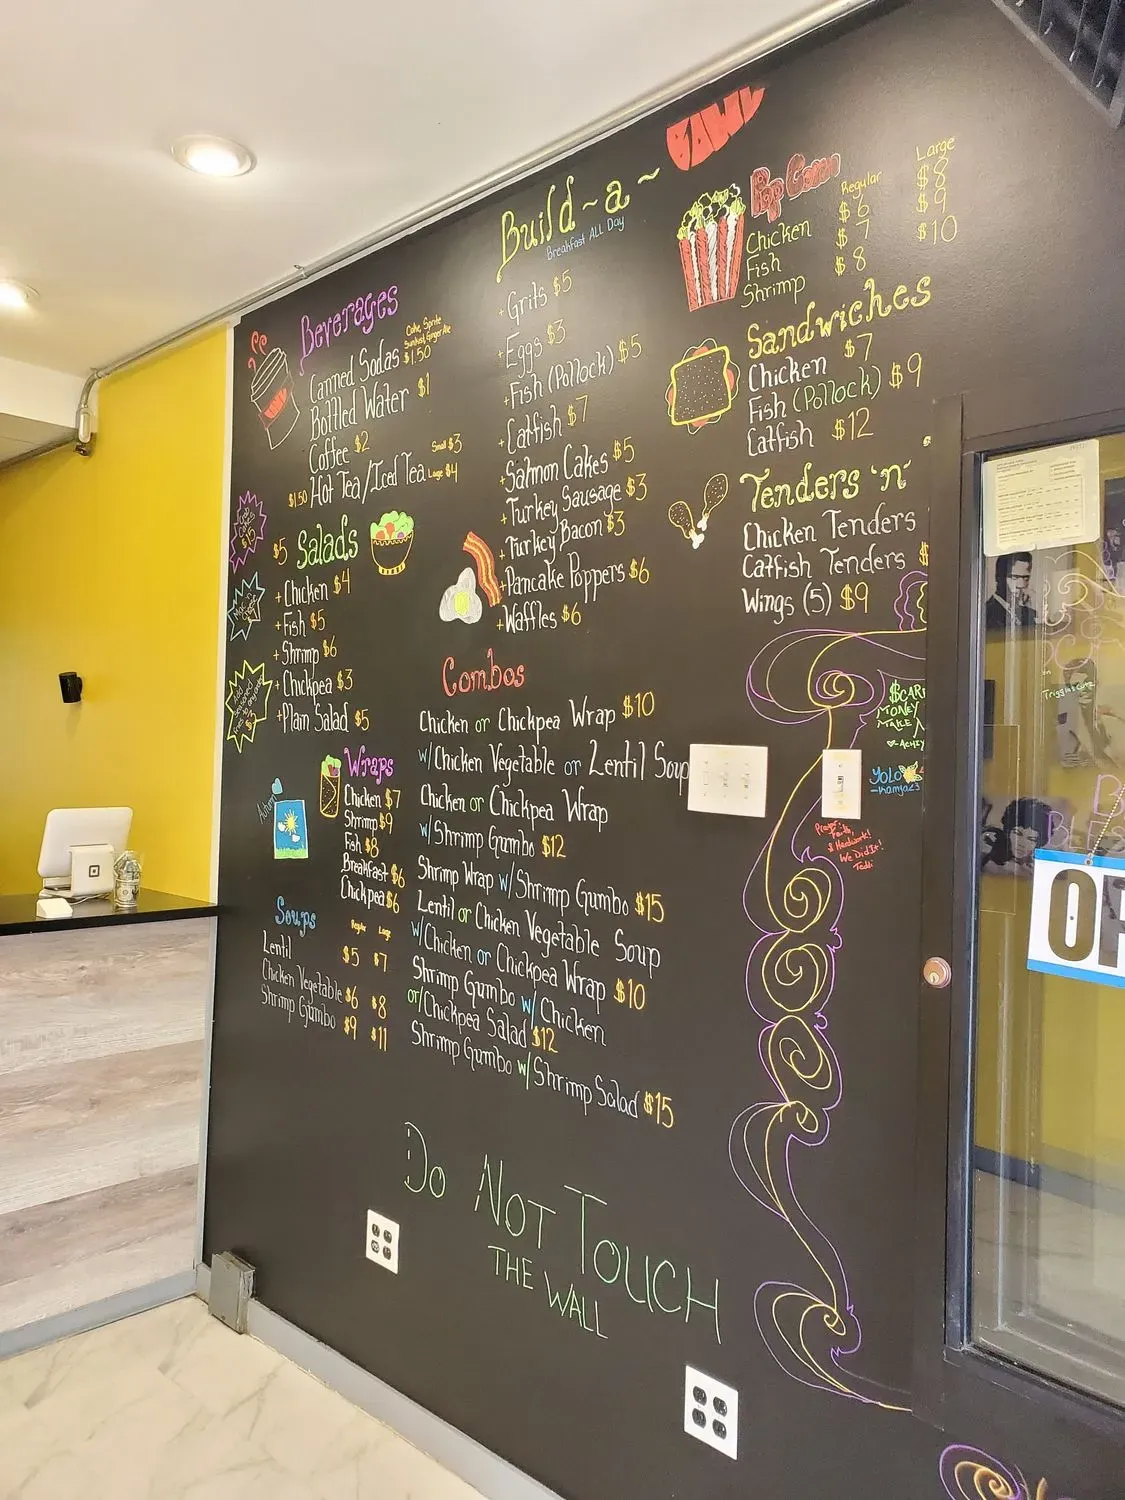 Beverages
Canned Sodas
Coke, Sprite
Sunkist, Ginger Ale
$1.50
Bottled Water $1
Coffee $2
$1.50 Hot Tea/Iced Tea Small $3
Large $4
$5 Salads
+ Chicken $4
+ Fish $5
+ Shrimp $6
+ Chickpea $3
+ Plain Salad $5
Wraps
Chicken $7
Shrimp $9
Fish $8
Breakfast $6
Chickpea $6
Autumn
Soups
Regular Large
Lentil $5 $7
Chicken Vegetable $6 $8
Shrimp Gumbo $9 $11
Build~a~
BOWL
Breakfast ALL Day
+ Grits $5
+ Eggs $3
+ Fish (Pollock) $5
+ Catfish $7
+ Salmon Cakes $5
+ Turkey Sausage $3
+ Turkey Bacon $3
+ Pancake Poppers $6
+ Waffles $6
Combos
Chicken or Chickpea Wrap $10
w/ Chicken Vegetable or Lentil Soup
Chicken or Chickpea Wrap
w/ Shrimp Gumbo $12
Shrimp Wrap w/ Shrimp Gumbo $15
Lentil or Chicken Vegetable Soup
w/ Chicken or Chickpea Wrap $10
Shrimp Gumbo w/ Chicken
or/ Chickpea Salad $12
Shrimp Gumbo w/ Shrimp Salad $15
Pop Corn
Regular Large
Chicken $6 $8
Fish $7 $9
Shrimp $8 $10
Sandwiches
Chicken $7
Fish (Pollock) $9
Catfish $12
Tenders 'n'
Chicken Tenders
Catfish Tenders $
Wings (5) $9
MONEY
YOLO
Prayer,
Faith,
& Hardwork!
We Did It!
Teddi
DO NOT TOUCH
THE WALL
OP